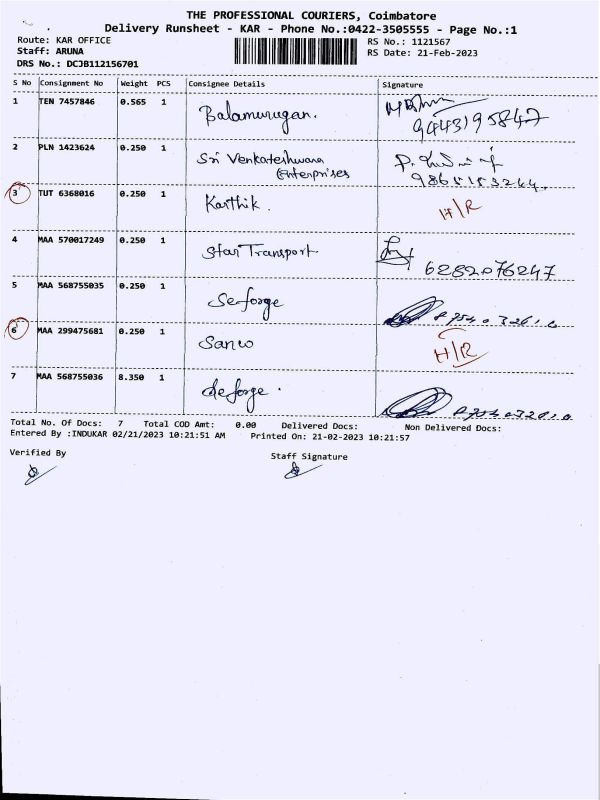 THE PROFESSIONAL COURIERS, Coimbatore
Delivery Runsheet - KAR - Phone No.:0422-3505555 - Page No.:1
Route: KAR OFFICE
Staff: ARUNA
DRS No.: DCJB112156701
RS No.: 1121567
RS Date: 21-Feb-2023
S No Consignment No Weight PCS Consignee Details Signature
1 TEN 7457846 0.565 1 Balamurugan. 9443195847
2 PLN 1423624 0.250 1 Sri Venkateshwara
Enterprises
3 TUT 6368016 0.250 1 Karthik. H/R
4 MAA 570017249 0.250 1 Star Transport 6282076247
5 MAA 568755035 0.250 1 Seforge
6 MAA 299475681 0.250 1 Sanco H/R
7 MAA 568755036 8.350 1 Seforge.
Total No. Of Docs: 7 Total COD Amt: 0.00 Delivered Docs: Non Delivered Docs:
Entered By :INDUKAR 02/21/2023 10:21:51 AM Printed On: 21-02-2023 10:21:57
Verified By Staff Signature